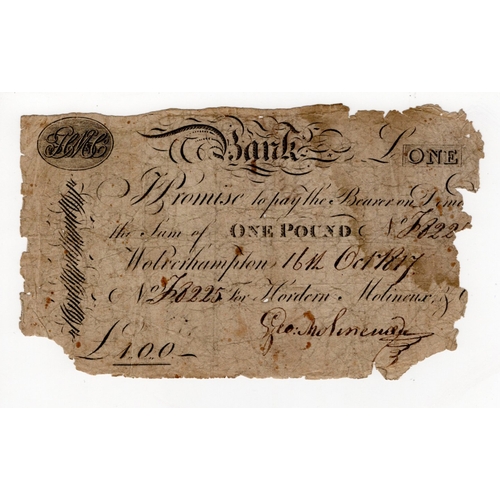 Bank £ ONE
I Promise to pay the Bearer on Dem
the Sum of ONE POUND No F822
Wolverhampton 16th Oct 1817
No F8225 For Hordern Molineux, &
Geo: Molineux
£1.00